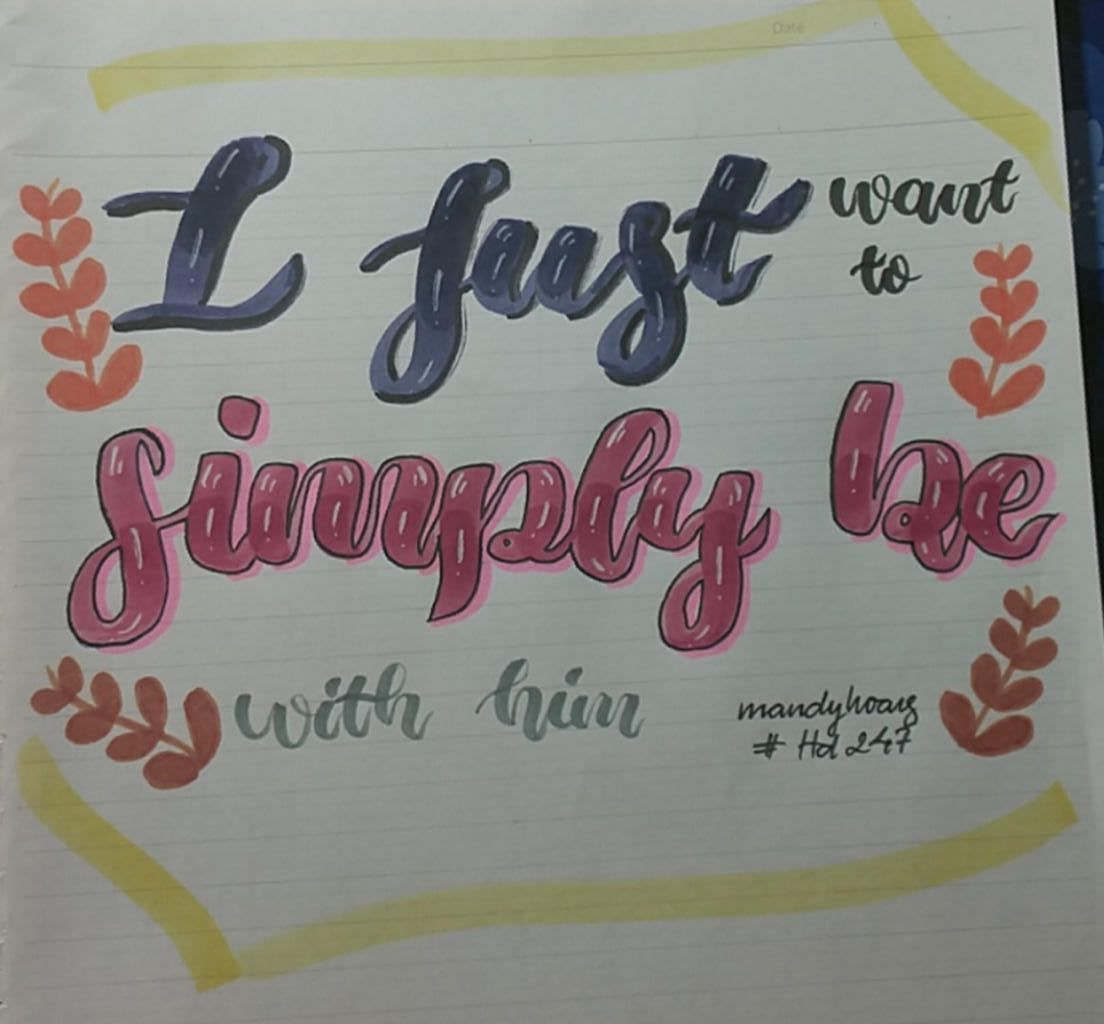 Date
I just want
to
simply be
with him
mandyhoang
# Hd 247